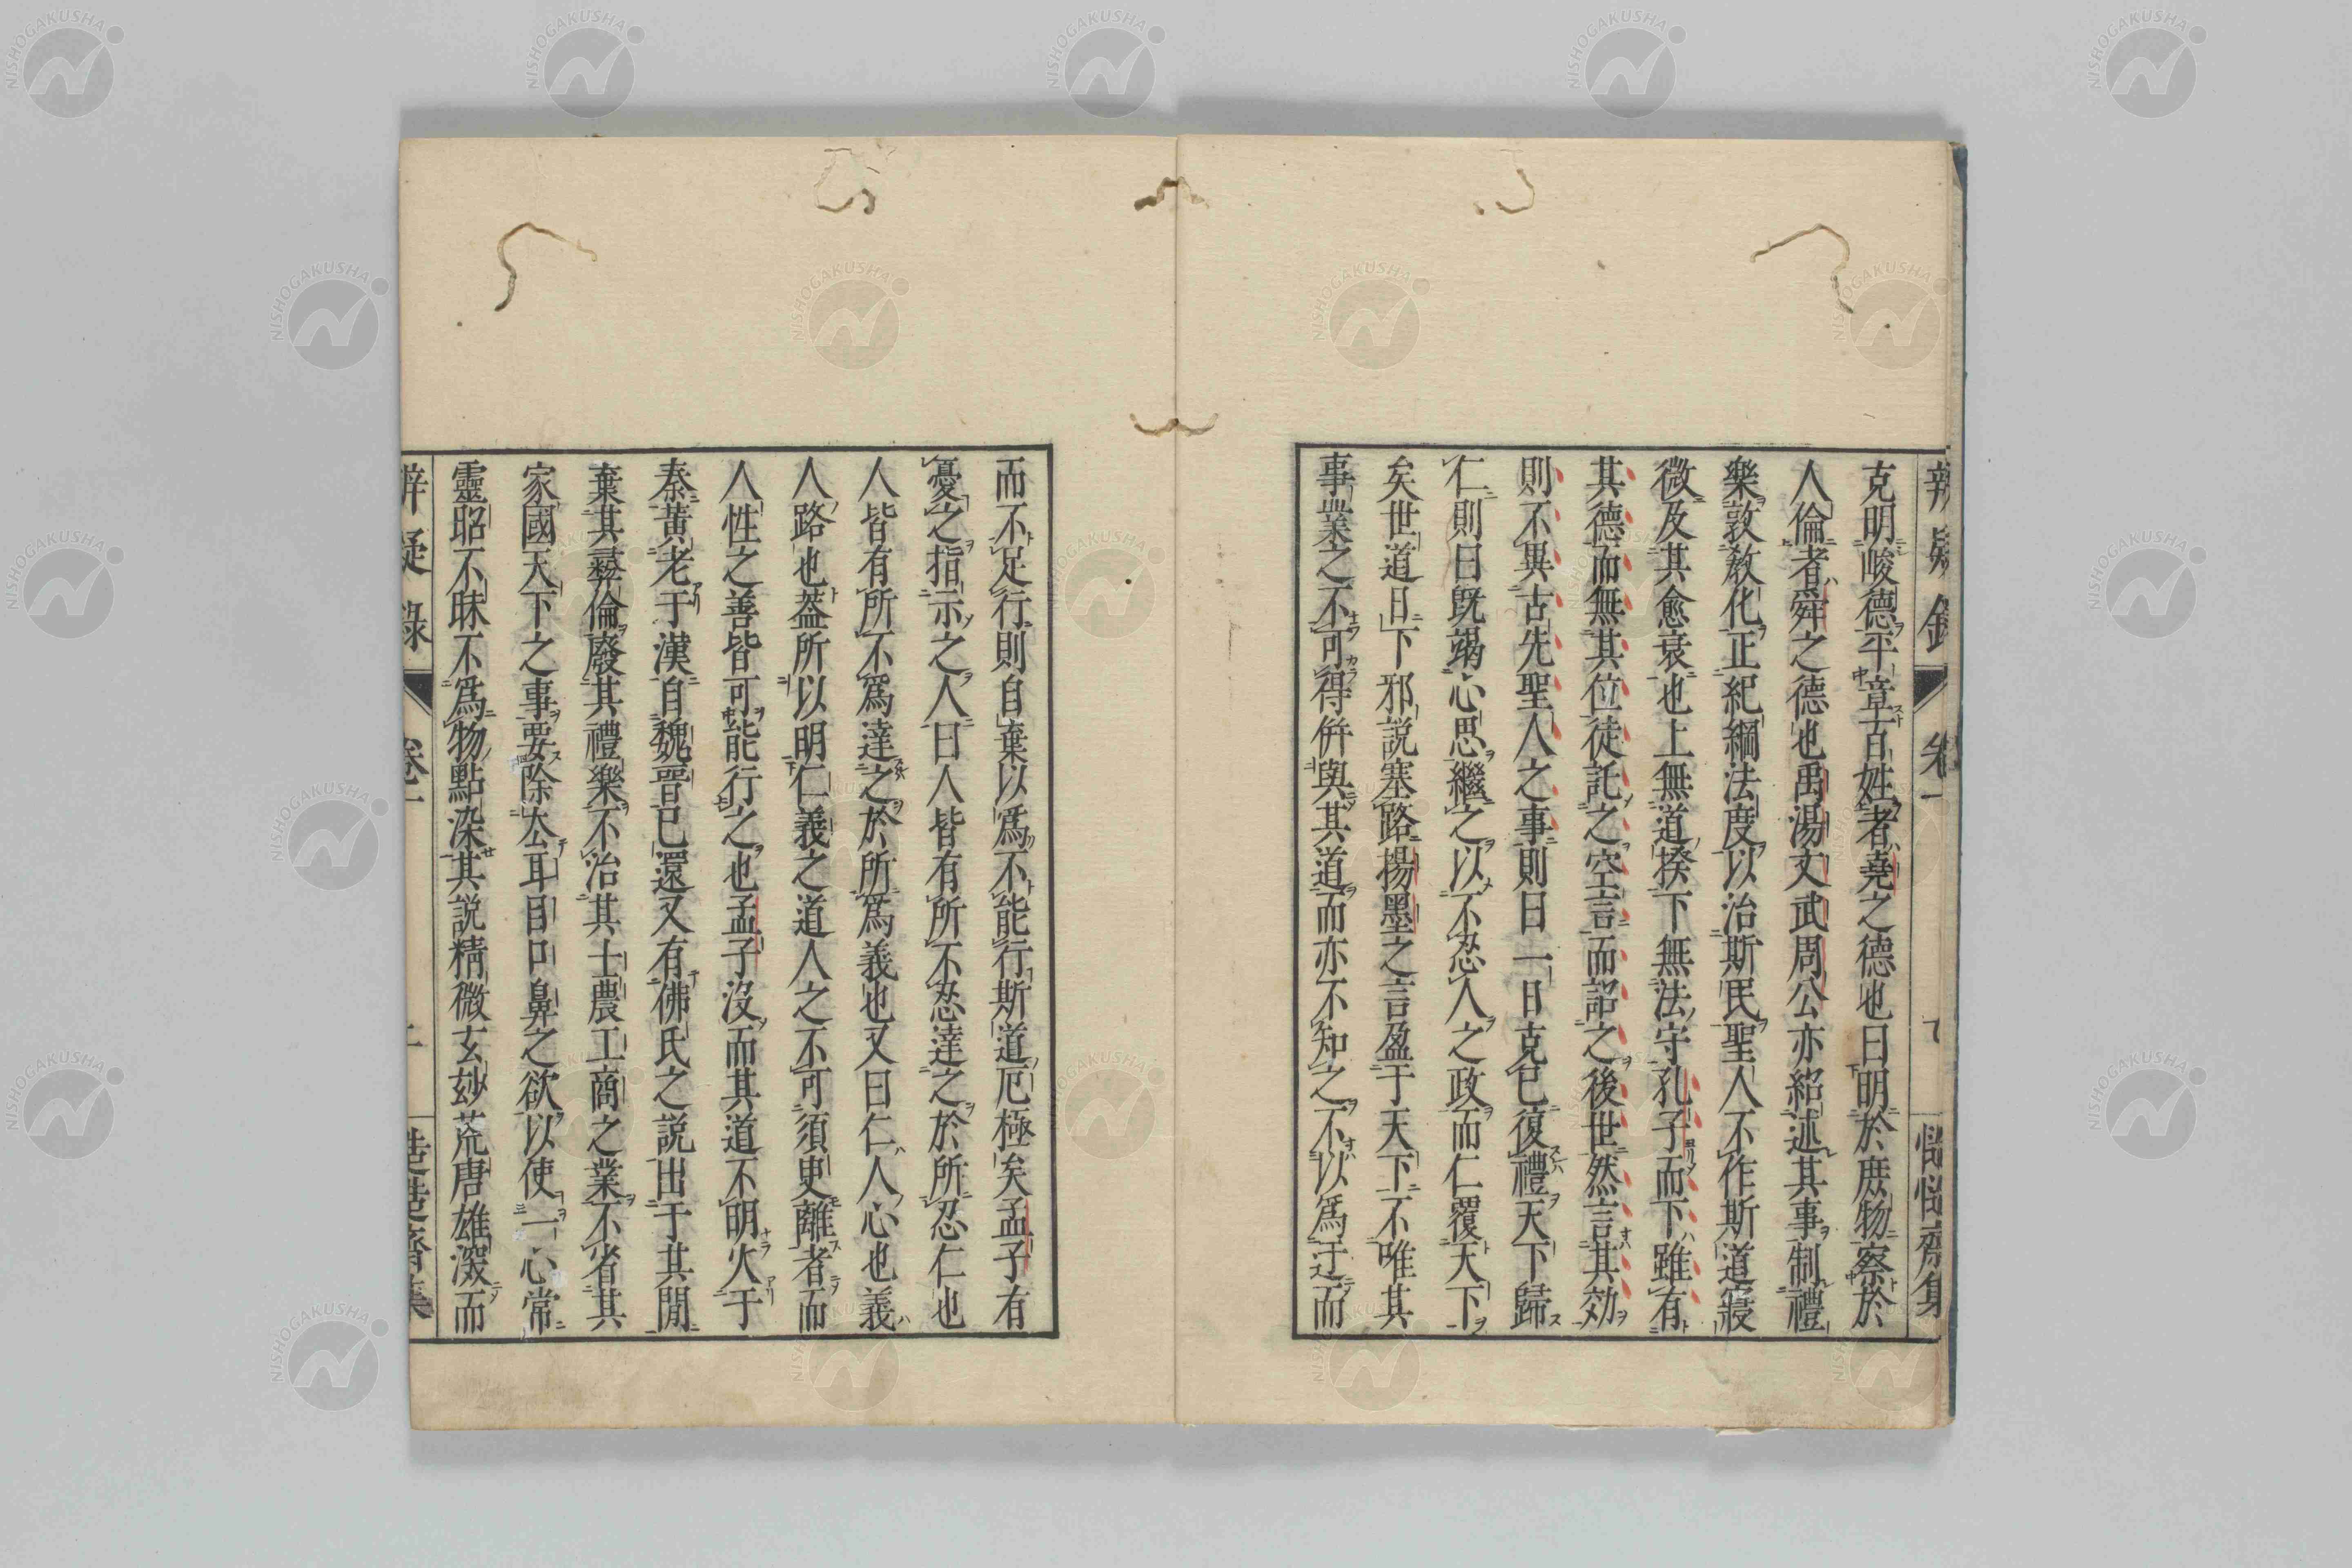 辨疑錄 卷一 慥慥齋集
克明峻德平章百姓者堯之德也曰明於庶物察於
人倫者舜之德也禹湯文武周公亦紹述其事制禮
樂敦敎化正紀綱法度以治斯民聖人不作斯道寢
微及其愈衰也上無道揆下無法守孔子而下雖有
其德而無其位徒託之空言而詔之後世然言其効
則不異古先聖人之事則曰一日克己復禮天下歸
仁則曰旣竭心思繼之以不忍人之政而仁覆天下
矣世道日下邪說塞路楊墨之言盈于天下不唯其
事業之不可得倂與其道而亦不知之不以爲迂而
而不足行則自棄以爲不能行斯道厄極矣孟子有
憂之指示之人曰人皆有所不忍達之於所忍仁也
人皆有所不爲達之於所爲義也又曰仁人心也義
人路也蓋所以明仁義之道人之不可須臾離者而
人性之善皆可能行之也孟子沒而其道不明火于
秦黃老于漢自魏晉已還又有佛氏之說出于其間
棄其彜倫廢其禮樂不治其士農工商之業不省其
家國天下之事要除去耳目口鼻之欲以使一心常
靈昭不昧不爲物點染其說精微玄玅荒唐雄深而
辨疑錄 卷一 二 慥慥齋集